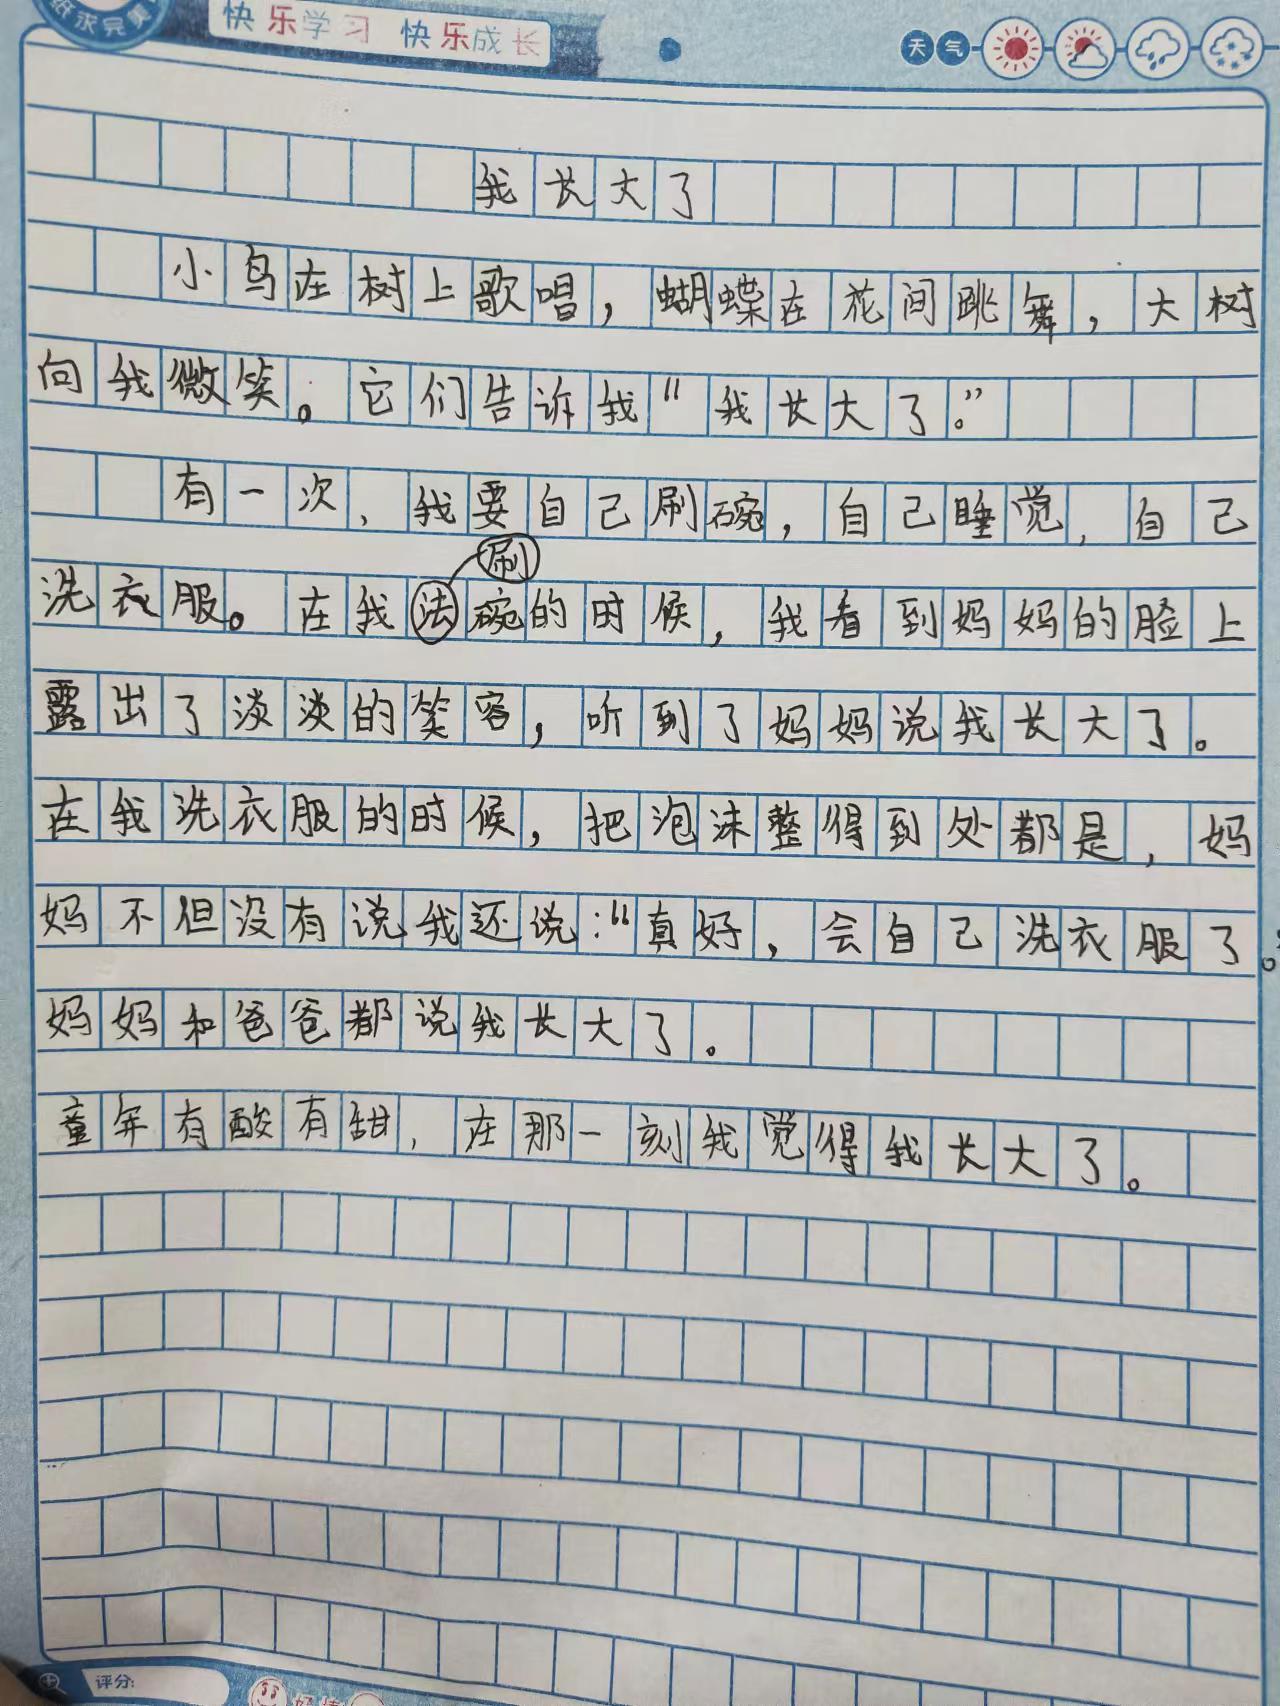 求完美
快乐学习 快乐成长
天气
我长大了
小鸟在树上歌唱，蝴蝶在花间跳舞，大树
向我微笑。它们告诉我“我长大了。”
有一次，我要自己刷碗，自己睡觉，自己
刷
洗衣服。在我法碗的时候，我看到妈妈的脸上
露出了淡淡的笑容，听到了妈妈说我长大了。
在我洗衣服的时候，把泡沫整得到处都是，妈
妈不但没有说我还说：“真好，会自己洗衣服了。”
妈妈和爸爸都说我长大了。
童年有酸有甜，在那一刻我觉得我长大了。
评分: